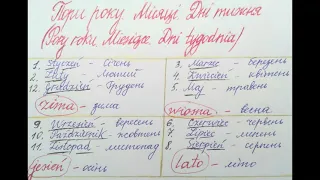 Пори року. Місяці. Дні тижня
(Pory roku. Miesiące. Dni tygodnia)
1. Styczeń - Січень
2. Luty - Лютий
12. Grudzień - Грудень
zima - зима
3. Marzec - березень
4. Kwiecień - квітень
5. Maj - травень
wiosna - весна
9. Wrzesień - вересень
10. Październik - жовтень
11. Listopad - листопад
jesień - осінь
6. Czerwiec - червень
7. Lipiec - липень
8. Sierpień - серпень
lato - літо